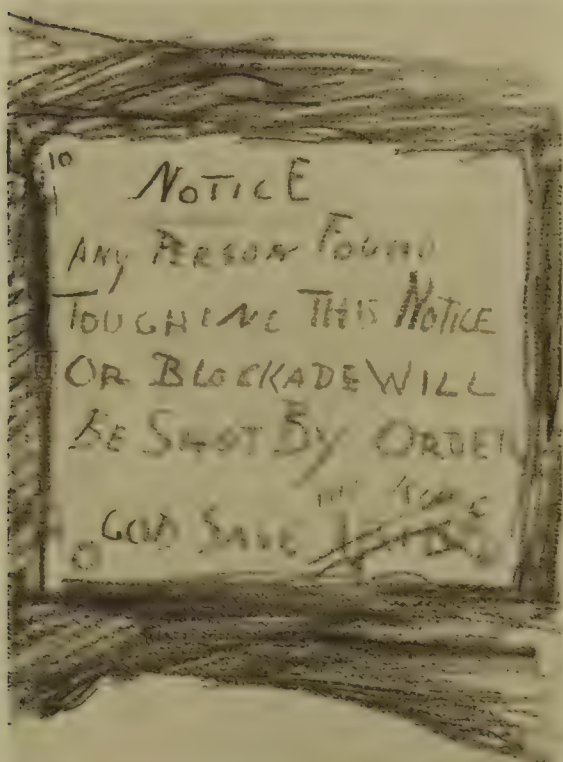 10
NOTICE
ANY PERSON FOUND
TOUCHING THIS NOTICE
OR BLOCKADE WILL
BE SHOT BY ORDER
GOD SAVE